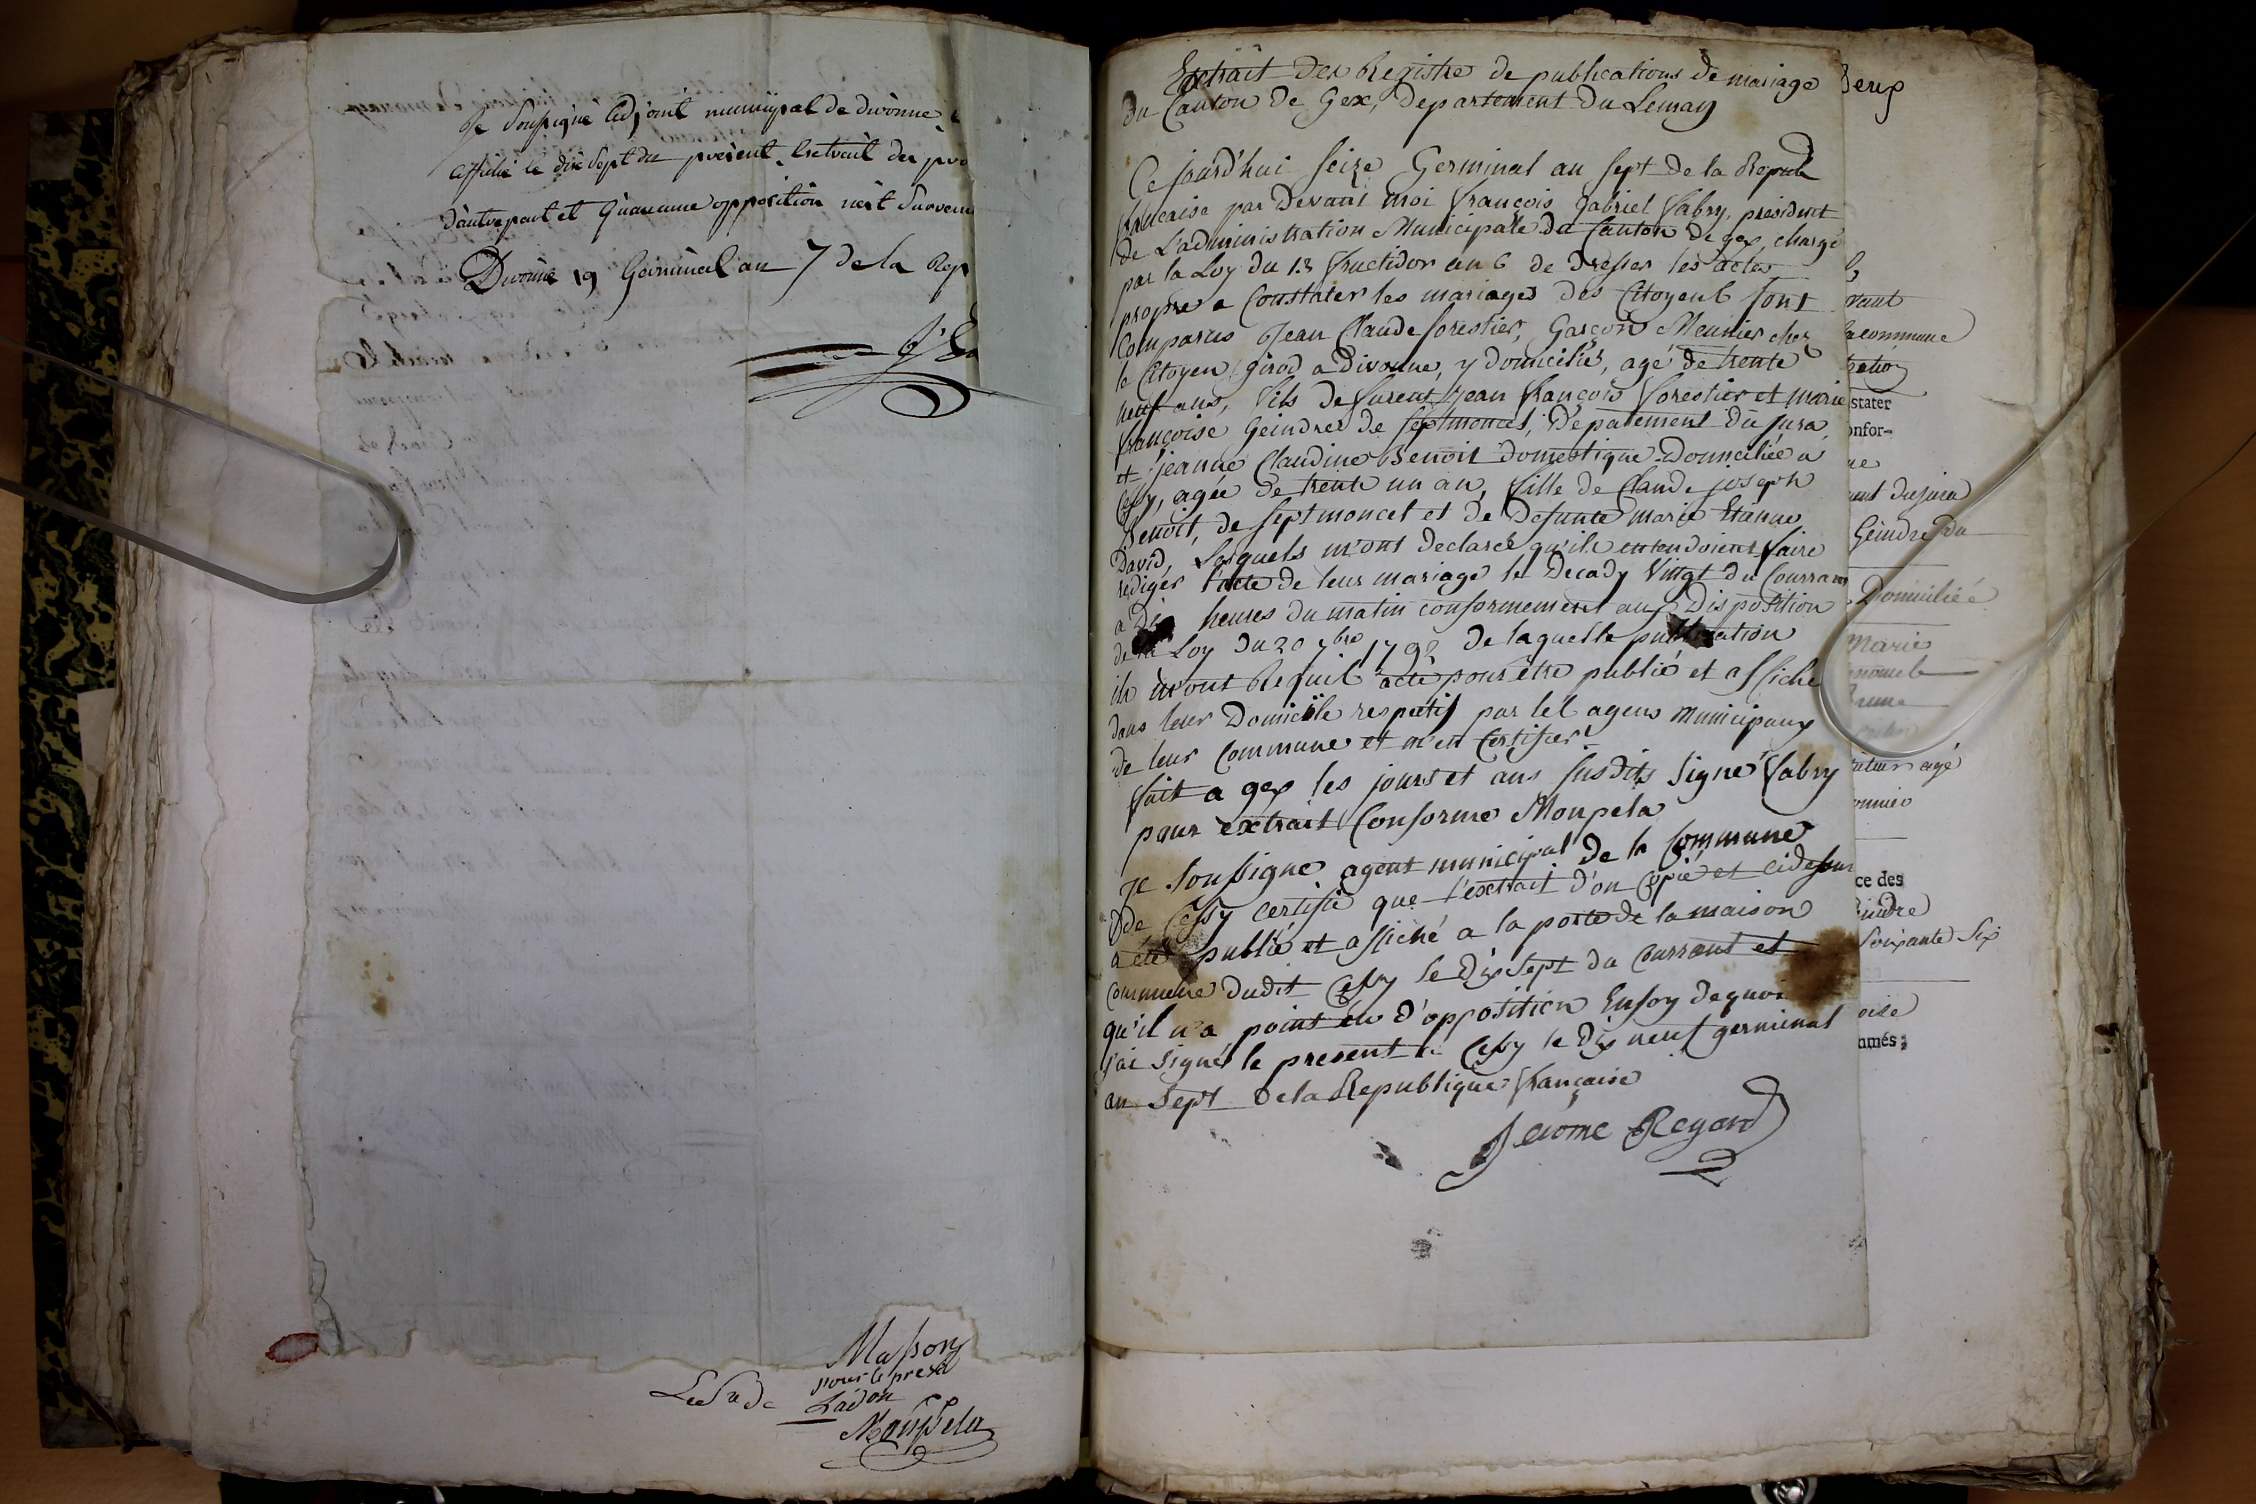 Je Soussigné adjoint municipal de divonne
affiché le dix Sept du présent Lextrait des pro
d'autre part et Quaucune opposition n'est Survenu
Divonne 19 Germinal an 7 de la Rep
Masson
pour le presd
Ladon
Monpela
Extrait des Registre de publications de mariage
du Canton de Gex, departement du Leman
Ce jourd'hui seize Germinal an sept de la Repub
francaise par devant moi françois gabriel fabry, president
de L'administration Municipale du Canton de gex, chargé
par la Loy du 13 fructidor an 6 de dresser les actes
propre a Constater les mariages des Citoyens sont
Comparus Jean Claude forestier, Garçon Meunier chez
le Citoyen girod a Divonne, y domicilié, agé de trente
neuf ans, fils de furent Jean françois forestier et marie
françoise Geindre de septmoncel, Depatement du jura
et jeanne Claudine Benoit domestique Domiciliée a
Cessy, agée de trente un an, fille de Claude joseph
Benoit, de septmoncel et de defunte marie Etienne
David, Lesquels m'ont declaré qu'ils entendoient faire
rediger l'acte de leur mariage le Decady Vingt du Courrant
a Dix heures du matin conformement aux Disposition
de la Loy du 20 7bre 1792 de laquelle publication
ils m'ont Requis acte pour être publié et affiché
dans leur Domicile respectif par les agens municipaux
de leur Commune et m'en Certifier
fait a gex les jours et ans susdits signé fabry
pour extrait Conforme Monpela
Je soussigne agent municipal de la Commune
de Cessy certifie que l'extrait d'on Copié et cidessus
a été publié et affiché a la porte de la maison
Commune dudit Cessy le Dix sept du Courrant et
qu'il n'a point eu d'opposition Enfoy dequoi
j'ai signé le present a Cessy le Dix neuf germinal
an sept de la Republique française
Jerome Regard
vant
la commune
stater
onfor-
ne
ment du jura
Geindre du
Domiciliée
Marie
agé
ce des
eindre
Soixante Six
oise
més;